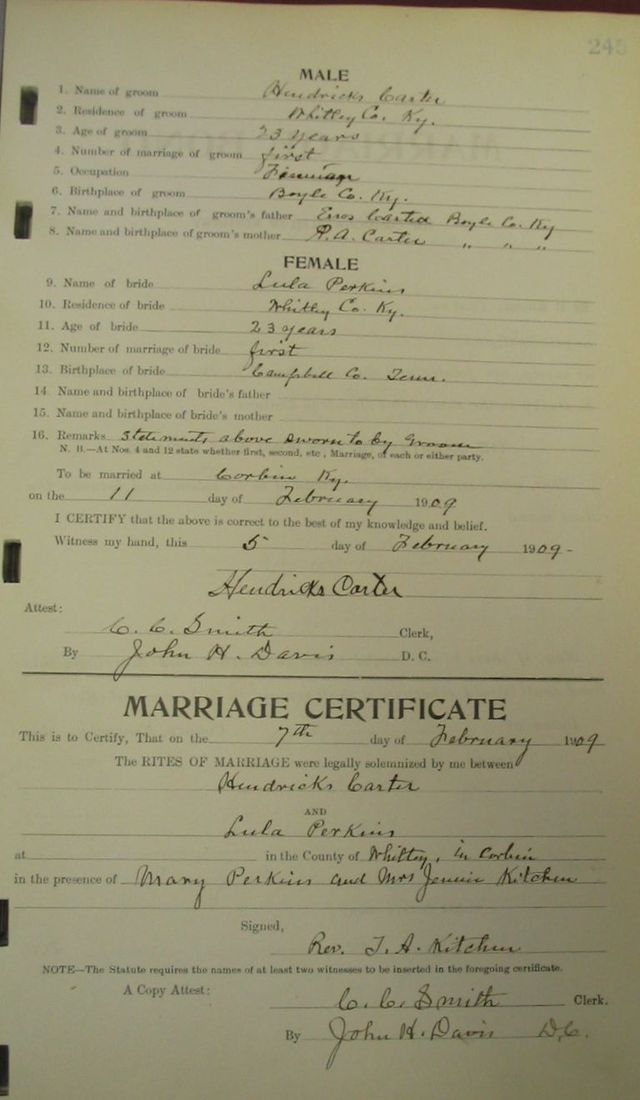 245
MALE
1. Name of groom Hendricks Carter
2. Residence of groom Whitley Co. Ky.
3. Age of groom 23 years
4. Number of marriage of groom first
5. Occupation
6. Birthplace of groom Boyle Co. Ky.
7. Name and birthplace of groom's father Enos Carted Boyle Co. Ky
8. Name and birthplace of groom's mother P. A. Carter " " "
FEMALE
9. Name of bride Lula Perkins
10. Residence of bride Whitley Co. Ky.
11. Age of bride 23 years
12. Number of marriage of bride first
13. Birthplace of bride Campbell Co. Tenn.
14. Name and birthplace of bride's father
15. Name and birthplace of bride's mother
16. Remarks Statements above sworn to by Groom
N. B.—At Nos. 4 and 12 state whether first, second, etc., Marriage, of each or either party.
To be married at Corbin Ky.
on the 11 day of February 1909
I CERTIFY that the above is correct to the best of my knowledge and belief.
Witness my hand, this 5 day of February 1909-
Hendricks Carter
Attest:
C. C. Smith Clerk,
By John H. Davis D. C.
MARRIAGE CERTIFICATE
This is to Certify, That on the 7th day of February 1909
The RITES OF MARRIAGE were legally solemnized by me between
Hendricks Carter
AND
Lula Perkins
at in the County of Whitley, in Corbin
in the presence of Mary Perkins and Mrs Jennie Kitchen
Signed,
Rev. T. A. Kitchen
NOTE—The Statute requires the names of at least two witnesses to be inserted in the foregoing certificate.
A Copy Attest:
C. C. Smith Clerk.
By John H. Davis D.C.